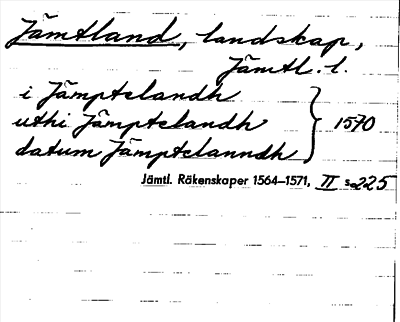 Jämtland, landskap,
Jämtl. l.
i Jämptelandh
uthi Jämptelandh } 1570
datum Jämptelanndh
Jämtl. Räkenskaper 1564–1571, II s. 225